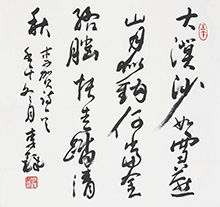 大漠沙如雪燕
山月似鈎何當金
絡腦快走踏清
秋 李賀詩
壬午 月 李鐸